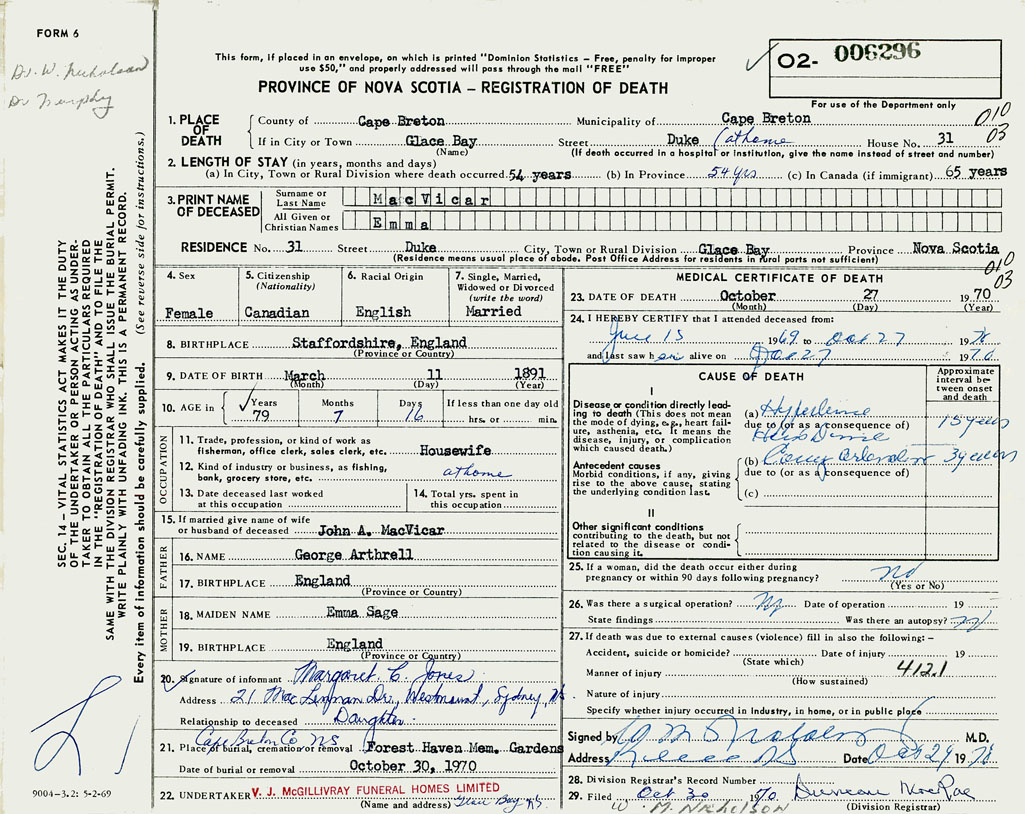 FORM 6
Dr. W. Nicholson
Dr
This form, if placed in an envelope, on which is printed "Dominion Statistics - Free, penalty for improper
use $50," and properly addressed will pass through the mail "FREE"
PROVINCE OF NOVA SCOTIA – REGISTRATION OF DEATH
O2- 006296
For use of the Department only
010
03
1. PLACE OF DEATH
County of Cape Breton Municipality of Cape Breton
If in City or Town Glace Bay Street Duke (at home House No. 31
(Name) (If death occurred in a hospital or institution, give the name instead of street and number)
2. LENGTH OF STAY (in years, months and days)
(a) In City, Town or Rural Division where death occurred 54 years (b) In Province 54 yrs (c) In Canada (if immigrant) 65 years
3. PRINT NAME OF DECEASED
Surname or Last Name MacVicar
All Given or Christian Names Emma
RESIDENCE No. 31 Street Duke City, Town or Rural Division Glace Bay Province Nova Scotia
(Residence means usual place of abode. Post Office Address for residents in rural parts not sufficient)
010
03
SEC. 14 – VITAL STATISTICS ACT MAKES IT THE DUTY
OF THE UNDERTAKER OR PERSON ACTING AS UNDER-
TAKER TO OBTAIN ALL THE PARTICULARS REQUIRED
IN THE "REGISTRATION OF DEATH" AND TO FILE THE
SAME WITH THE DIVISION REGISTRAR WHO SHALL ISSUE THE BURIAL PERMIT.
WRITE PLAINLY WITH UNFADING INK. THIS IS A PERMANENT RECORD.
Every item of information should be carefully supplied. (See reverse side for instructions.)
4. Sex
Female
5. Citizenship
(Nationality)
Canadian
6. Racial Origin
English
7. Single, Married,
Widowed or Divorced
(write the word)
Married
8. BIRTHPLACE Staffordshire, England
(Province or Country)
9. DATE OF BIRTH March 11 1891
(Month) (Day) (Year)
10. AGE in Years Months Days If less than one day old
79 7 16 hrs. or min.
OCCUPATION
11. Trade, profession, or kind of work as
fisherman, office clerk, sales clerk, etc. Housewife
12. Kind of industry or business, as fishing,
bank, grocery store, etc. at home
13. Date deceased last worked
at this occupation
14. Total yrs. spent in
this occupation
15. If married give name of wife
or husband of deceased John A. MacVicar
FATHER
16. NAME George Arthrell
17. BIRTHPLACE England
(Province or Country)
MOTHER
18. MAIDEN NAME Emma Sage
19. BIRTHPLACE England
(Province or Country)
20. Signature of informant Margaret C. Jones
Address 21 MacLennan Dr., Westmount, Sydney, NS
Relationship to deceased Daughter
Cape Breton Co NS
21. Place of burial, cremation or removal Forest Haven Mem. Gardens
Date of burial or removal October 30, 1970
22. UNDERTAKER V. J. McGILLIVRAY FUNERAL HOMES LIMITED
(Name and address) Glace Bay NS.
9004-3.2: 5-2-69
MEDICAL CERTIFICATE OF DEATH
23. DATE OF DEATH October 27 1970
(Month) (Day) (Year)
24. I HEREBY CERTIFY that I attended deceased from:
June 15 1969 to Oct 27 1970
and last saw her alive on Oct 27 1970
CAUSE OF DEATH
Approximate
interval be-
tween onset
and death
I
Disease or condition directly lead-
ing to death (This does not mean
the mode of dying, e.g., heart fail-
ure, asthenia, etc. It means the
disease, injury, or complication
which caused death.)
(a) 15 years
due to (or as a consequence of)
Antecedent causes
Morbid conditions, if any, giving
rise to the above cause, stating
the underlying condition last.
(b) 3 years
due to (or as a consequence of)
(c)
II
Other significant conditions
contributing to the death, but not
related to the disease or condi-
tion causing it.
25. If a woman, did the death occur either during
pregnancy or within 90 days following pregnancy? no
(Yes or No)
26. Was there a surgical operation? No Date of operation 19
State findings Was there an autopsy? No
27. If death was due to external causes (violence) fill in also the following: –
Accident, suicide or homicide? Date of injury 19
(State which)
Manner of injury 412.1
(How sustained)
Nature of injury
Specify whether injury occurred in industry, in home, or in public place
Signed by M.D.
Address Date Oct 29 1970
28. Division Registrar's Record Number
29. Filed Oct 30 1970 Duncan MacRae
W. M. NICHOLSON (Division Registrar)